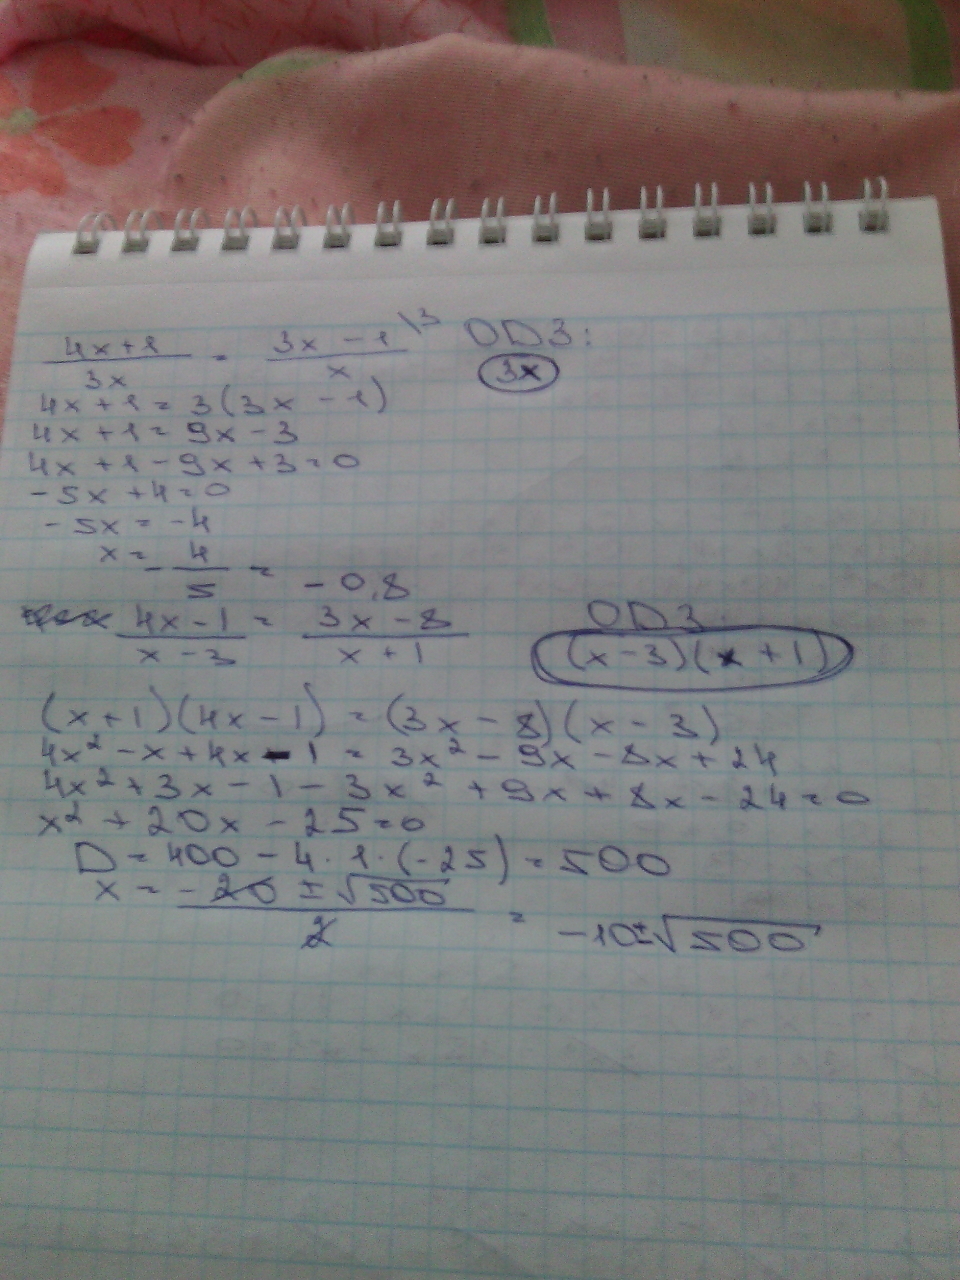 \frac{4x+1}{3x} = \frac{3x-1}{x} \3 ОДЗ:
3x
4x+1=3(3x-1)
4x+1=9x-3
4x+1-9x+3=0
-5x+4=0
-5x=-4
x=-\frac{4}{5}=-0,8
\frac{4x-1}{x-3}=\frac{3x-8}{x+1} ОДЗ:
(x-3)(x+1)
(x+1)(4x-1)=(3x-8)(x-3)
4x²-x+4x-1=3x²-9x-8x+24
4x²+3x-1-3x²+9x+8x-24=0
x²+20x-25=0
D=400-4·1·(-25)=500
x=\frac{-20±√500}{2}=-10±√500